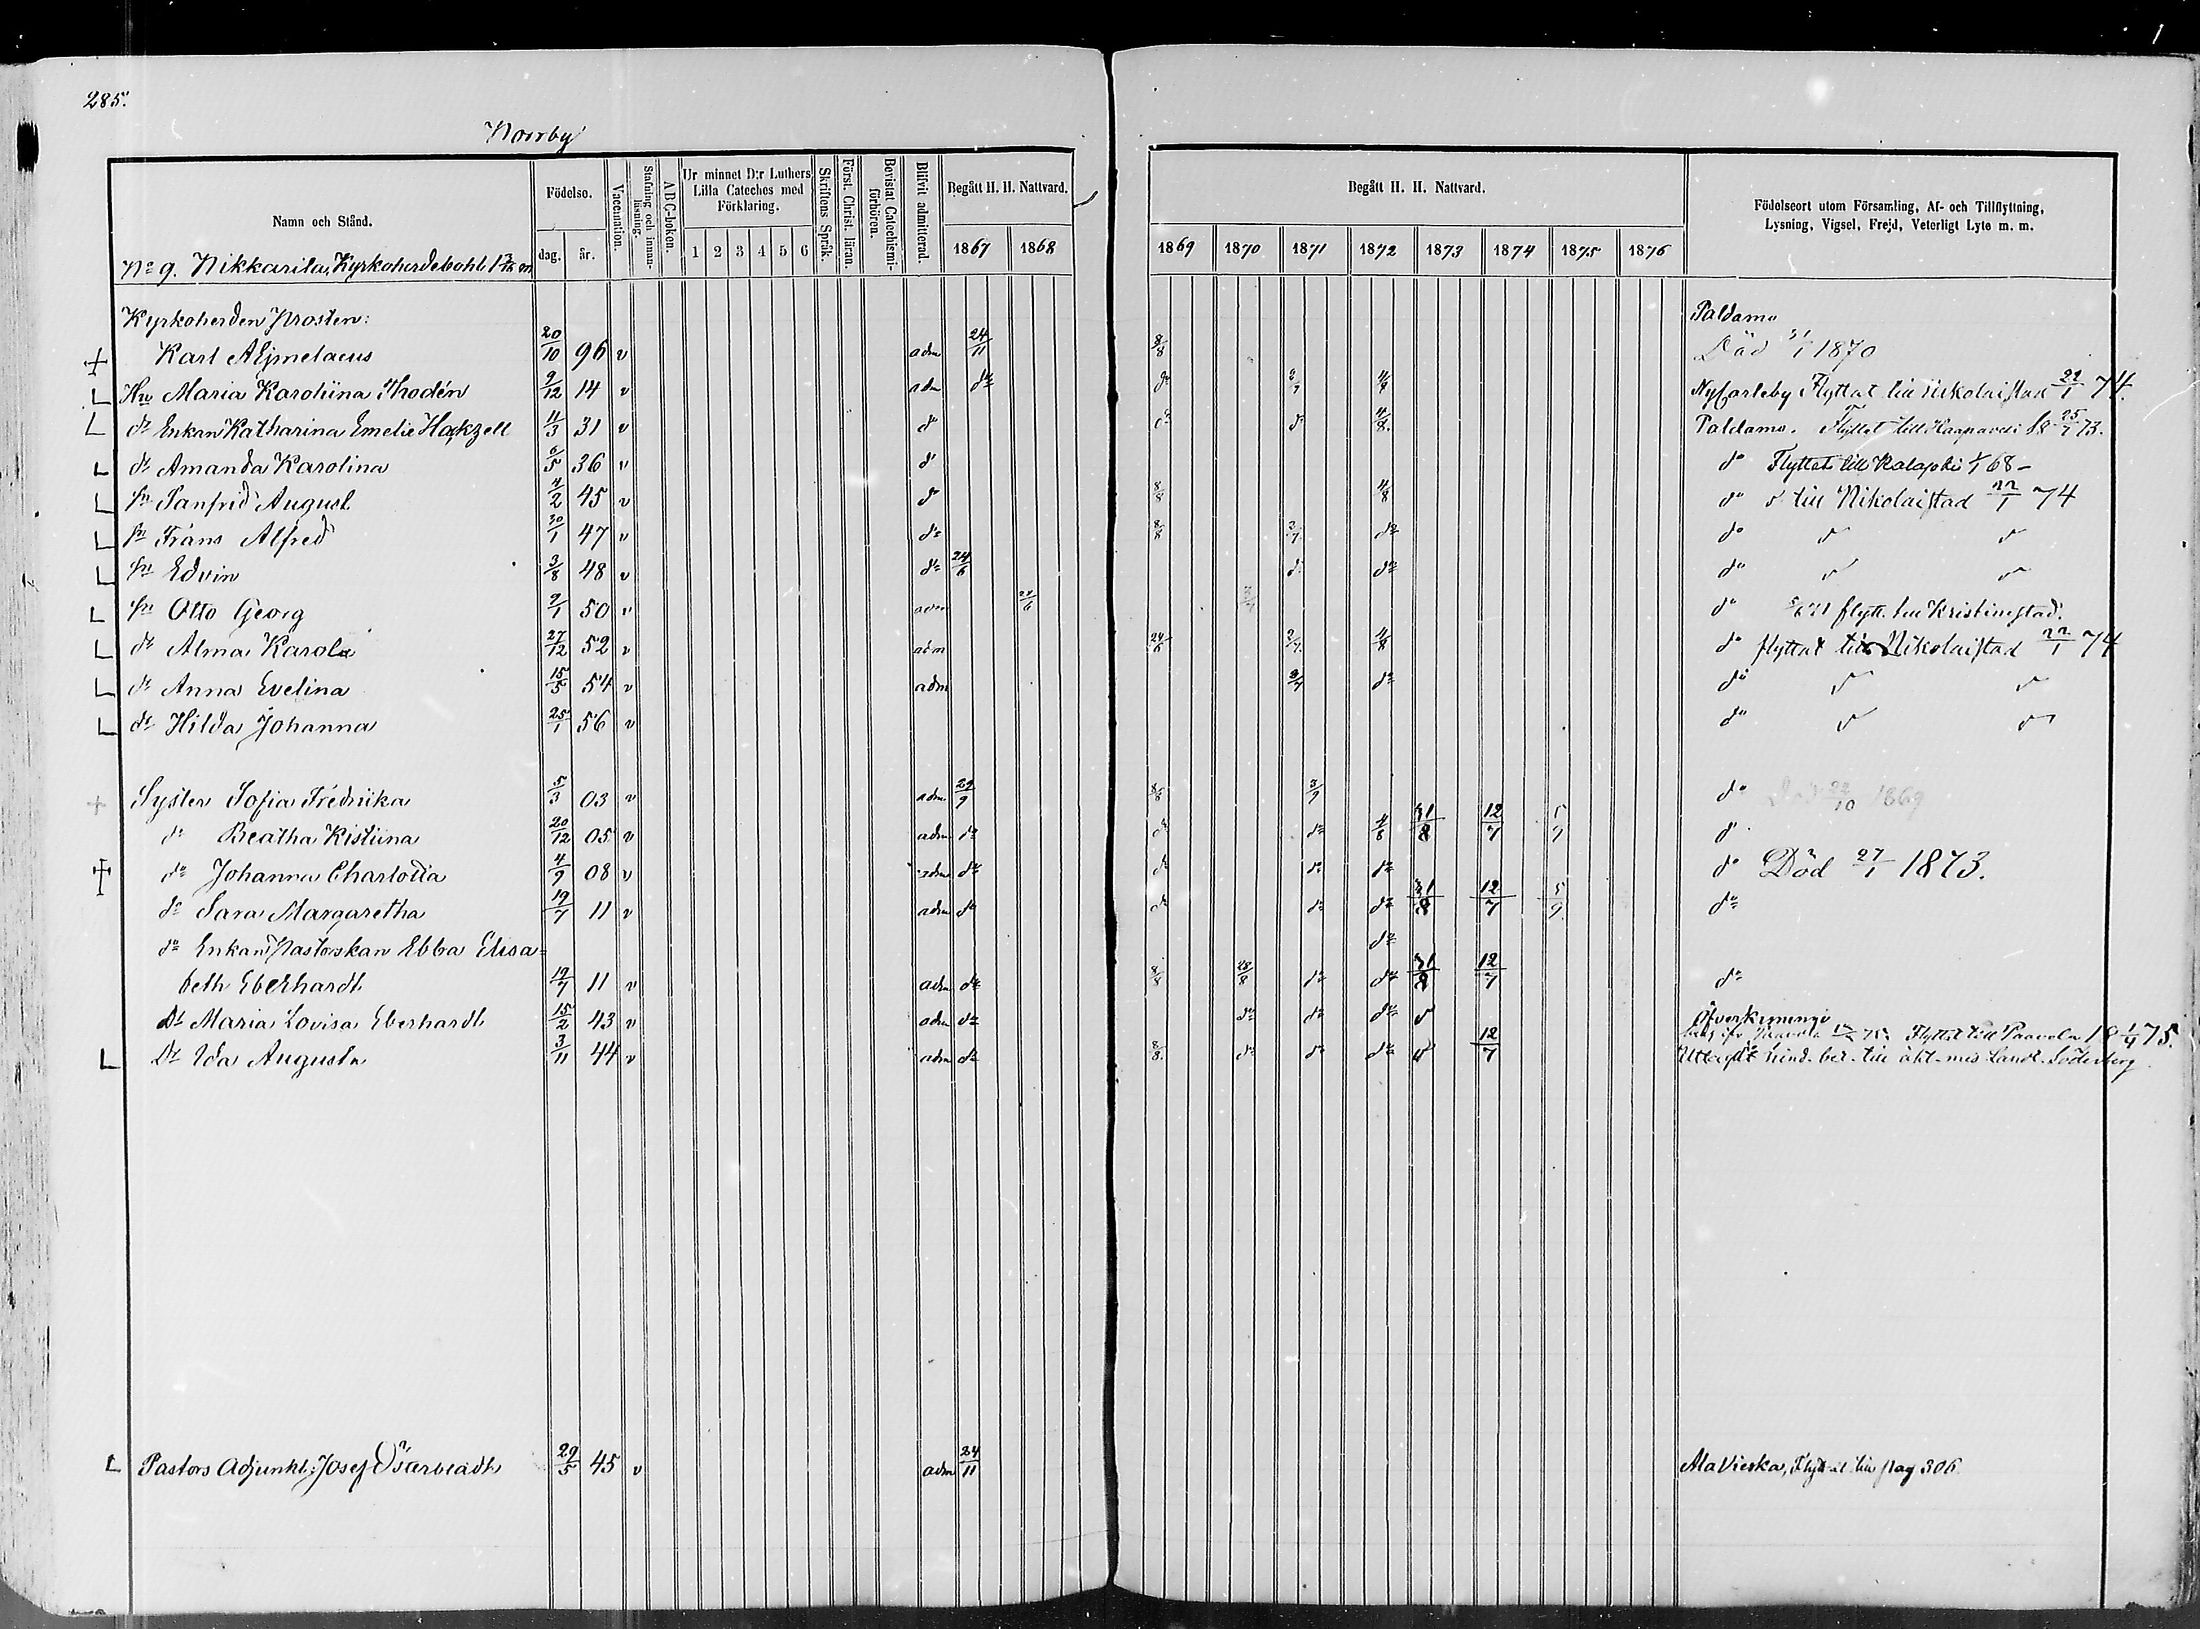 285.
Norrby
Namn och Stånd. Födelse. dag. år. Vaccination. Stafning och innanläsning. ABC-boken. Ur minnet D:r Luthers Lilla Catechos med Förklaring. 1 2 3 4 5 6 Skriftens Språk. Först. Christ. läran. Bevistat Catechismiförhören. Blifvit admitterad. Begått H. H. Nattvard. 1867 1868
Begått H. H. Nattvard. 1869 1870 1871 1872 1873 1874 1875 1876 Födelseort utom Församling, Af- och Tillflyttning, Lysning, Vigsel, Frejd, Veterligt Lyte m. m.
No 9. Nikkarila, Kyrkoherdebohl
Kyrkoherden Prosten: Paldamo
+ Karl Ajmelaeus 20/10 96 v adm 24/11 8/8 Död 31/1 1870
L Hu Maria Karoliina Thodén 9/12 14 v adm do do 2/7 4/8 Nycarleby Flyttat till Nikolaistad 22/1 74.
L dr Enkan Katharina Emelie Hackzell 11/3 31 v do do do 4/8. Paldamo. Flyttat till Haapavesi 18 25/7 73.
L dr Amanda Karolina 6/5 36 v do do Flyttat till Kalajoki 1/1 68 -
L sn Sanfrid August 4/2 45 v do 8/8 4/8 do v till Nikolaistad 22/1 74
L sn Frans Alfred 30/1 47 v do 8/8 2/7 do do v v
L sn Edvin 3/8 48 v do 24/6 do do do v v
L sn Otto Georg 2/1 50 v adm 24/6 3/7 do 5/6 71 flytt. till Kristinestad.
L dr Alma Karola 27/12 52 v adm 24/6 2/7 4/8 do flyttat till Nikolaistad 22/1 74
L dr Anna Evelina 15/5 54 v adm 2/7 do do v v
L dr Hilda Johanna 25/1 56 v do v v
+ Syster Sofia Fredrika 5/3 03 v adm 29/9 8/8 3/9 do Död 22/10 1869
do Beatha Kristiina 20/12 05 v adm do do do 4/8 31/8 12/7 5/9 do
+ do Johanna Charlotta 4/9 08 v adm do do do do do Död 27/1 1873.
do Sara Margaretha 19/7 11 v adm do do do do 31/8 12/7 5/9 do
do Enkan Pastorskan Ebba Elisa= do
beth Eberhardt 19/7 11 v adm do 8/8 28/8 do do 31/8 12/7 do
Dr Maria Lovisa Eberhardt 15/2 43 v adm do do do do v Öfverkiminge
L Dr Ida Augusta 3/11 44 v adm do 8/8. do do do v 12/7 Flyttat till Paavola 18 1/4 75.
till äkt. Söderberg
L Pastors Adjunkt: Josef Österbladh 29/5 45 v adm 24/11 Ala Vieska, Flyttat till pag 306